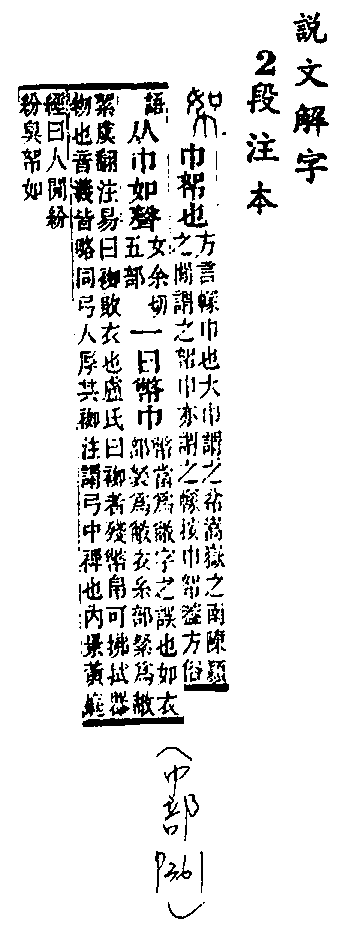 説文解字
2段注本
巾帤也
方言幏巾也大巾謂之㡘嵩嶽之南陳潁
之閒謂之帤巾亦謂之幏按巾帤葢方俗
語
从巾如聲
女余切
五部
一曰幣巾
幣當爲敝字之誤也如衣
部袈爲敝衣糸部絮爲敝
緜虞翻注易曰袽敗衣也盧氏曰袽者殘幣帛可拂拭器
物也音義皆略同弓人厚其袽注謂弓中裨也內景黃庭
經曰人閒紛
紛臭帤如
(巾部 P361)